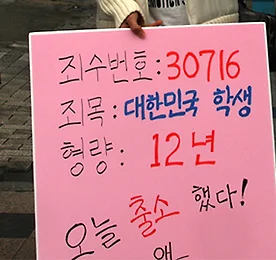 죄수번호:30716
죄목:대한민국 학생
형량: 12년
오늘 출소 했다!